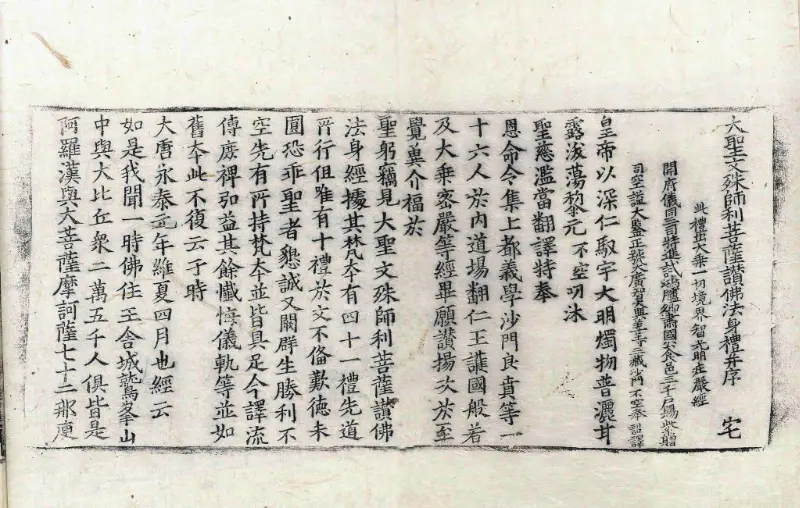 大聖文殊師利菩薩讚佛法身禮并序 宅
此禮出大乘一切境界智光明莊嚴經
開府儀同三司特進試鴻臚卿肅國公食邑三千戶賜紫贈
司空謚大鑒正號大廣智大興善寺三藏沙門不空奉 詔譯
皇帝以深仁馭宇大明燭物普灑甘
露浹蕩黎元不空叨沐
聖慈濫當翻譯特奉
恩命令集上都義學沙門良賁等一
十六人於內道場翻仁王護國般若
及大乘密嚴等經畢願讚揚次於至
覺冀介福於
聖躬竊見大聖文殊師利菩薩讚佛
法身經據其梵本有四十一禮先道
所行但唯有十禮於文不俻歎德未
圓恐乖聖者懇誠又闕群生勝利不
空先有所持梵本並皆具足今譯流
傳庶裨弘益其餘懺悔儀軌等並如
舊本此不復云于時
大唐永泰元年維夏四月也經云
如是我聞一時佛住王舍城鷲峯山
中與大比丘衆二萬五千人俱皆是
阿羅漢與大菩薩摩訶薩七十二那庾